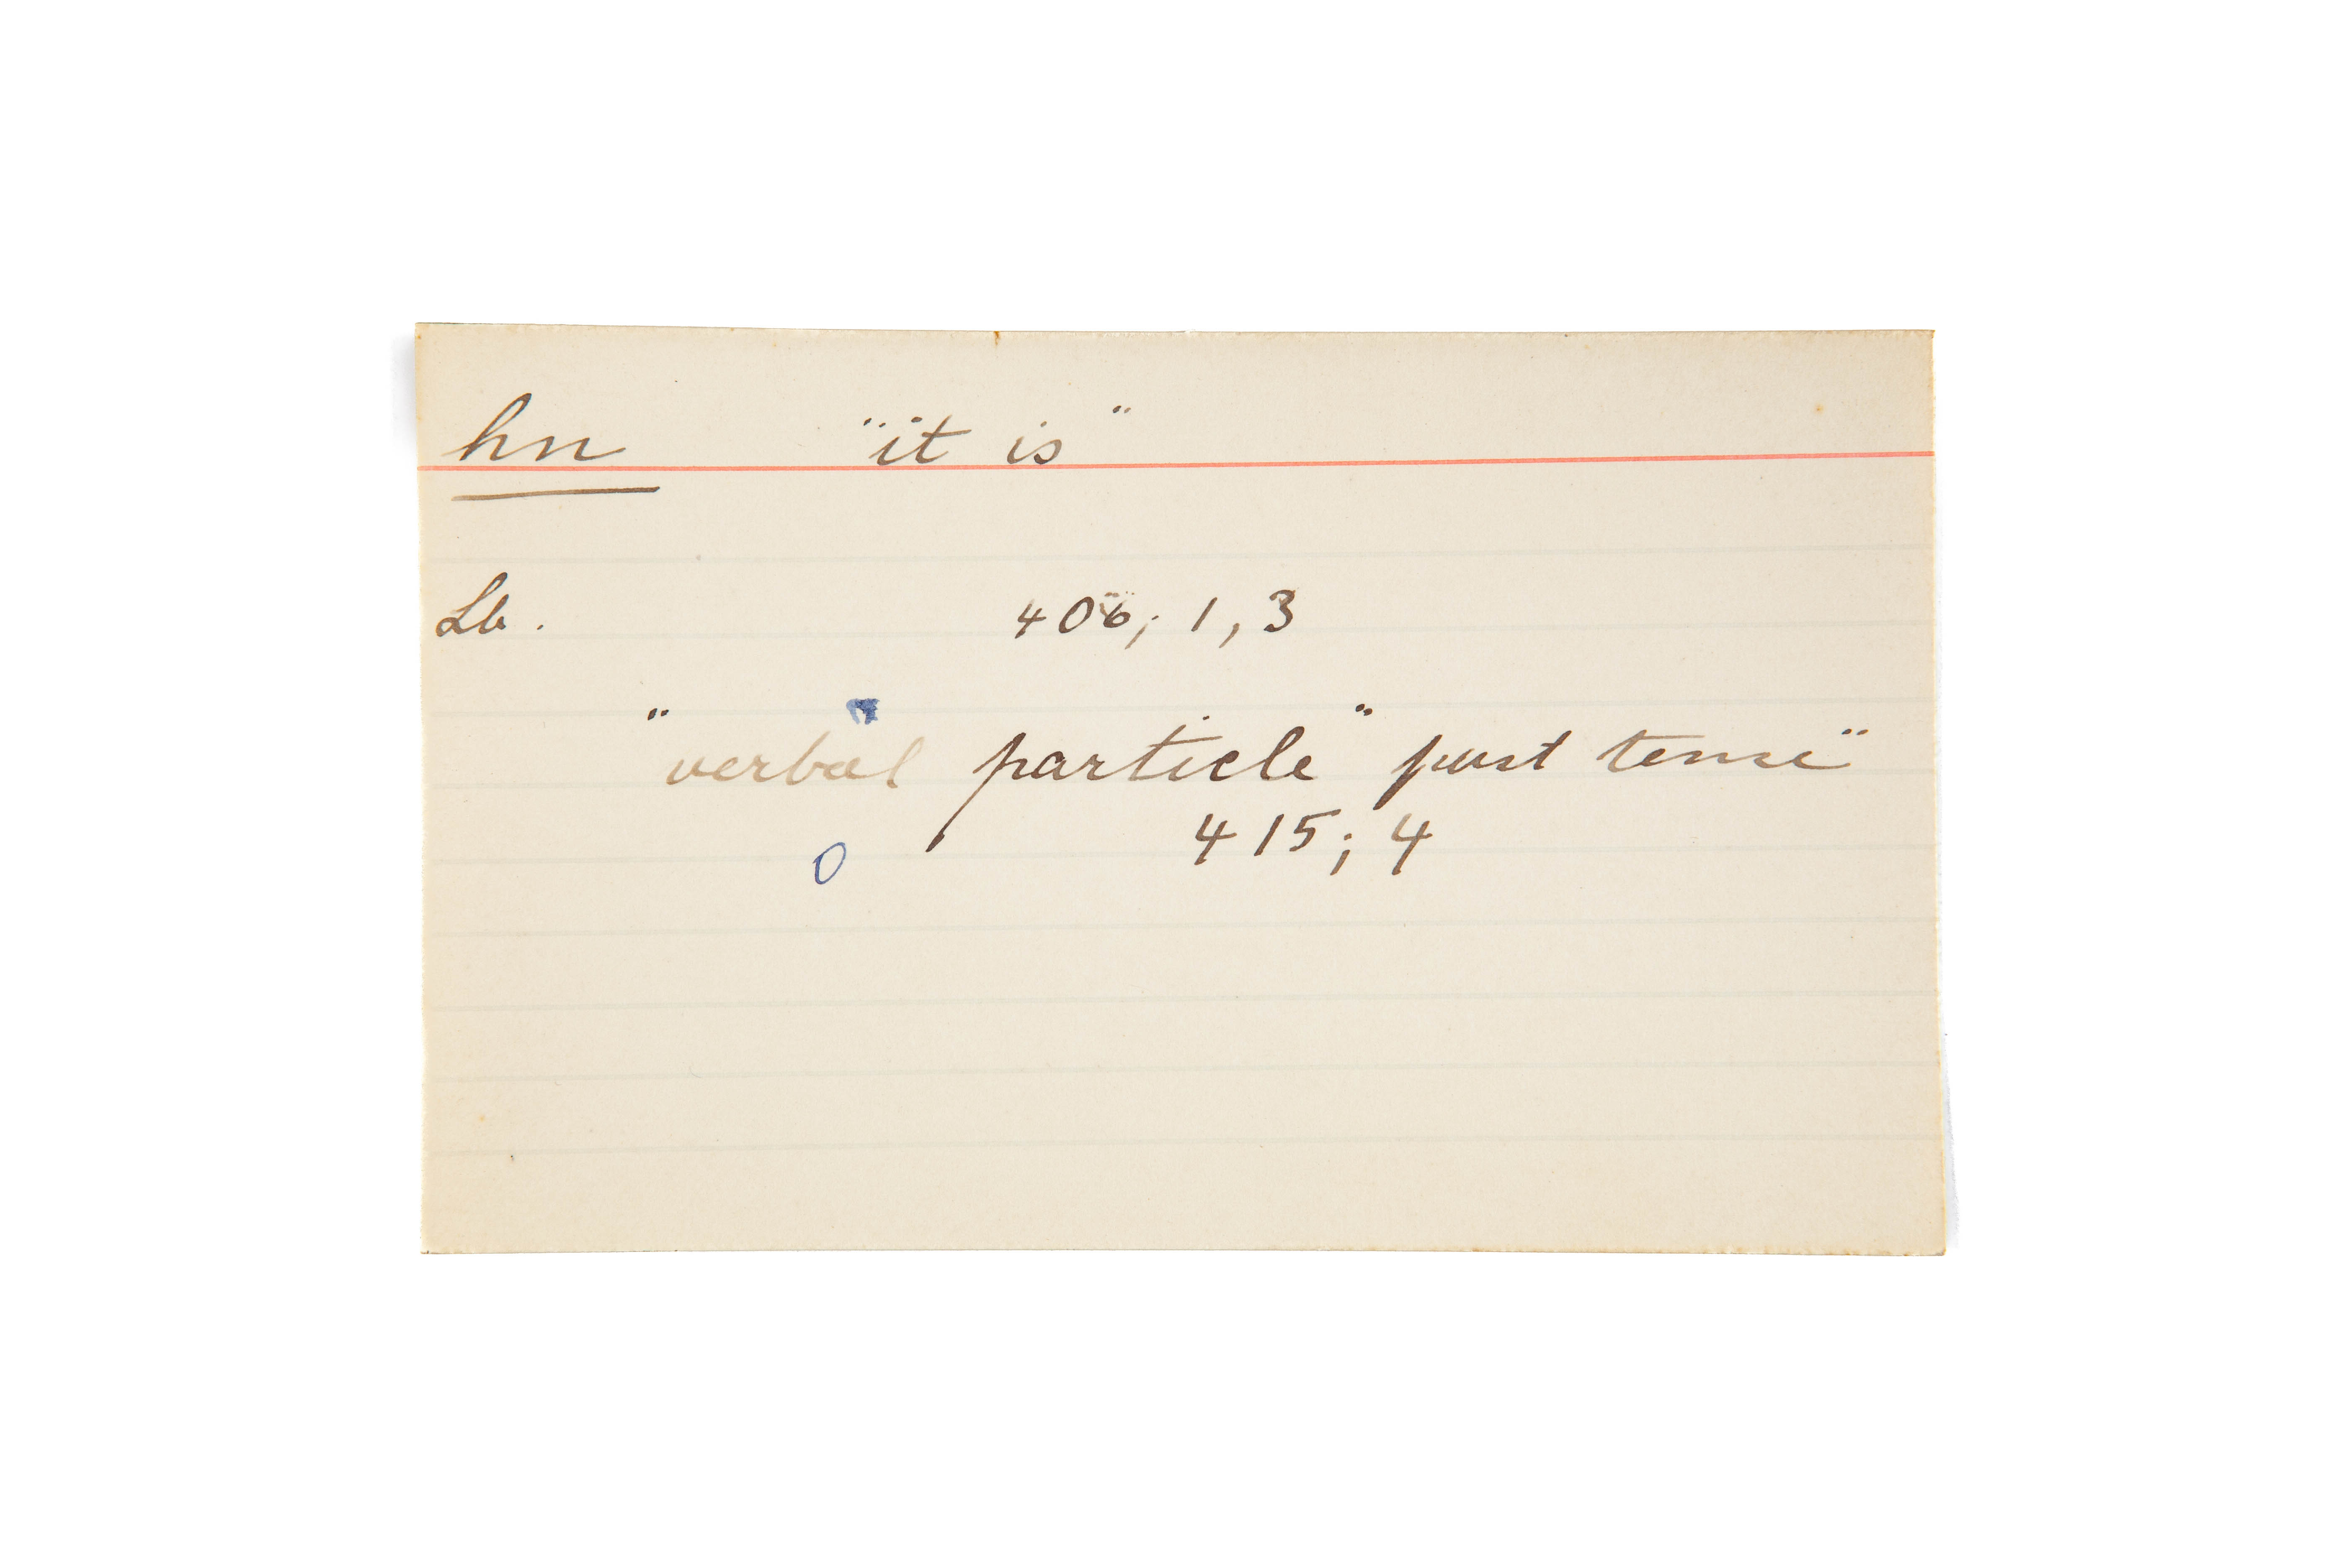 hn "it is"
Lb. 406; 1, 3
"verbal particle" past tense"
415; 4
0